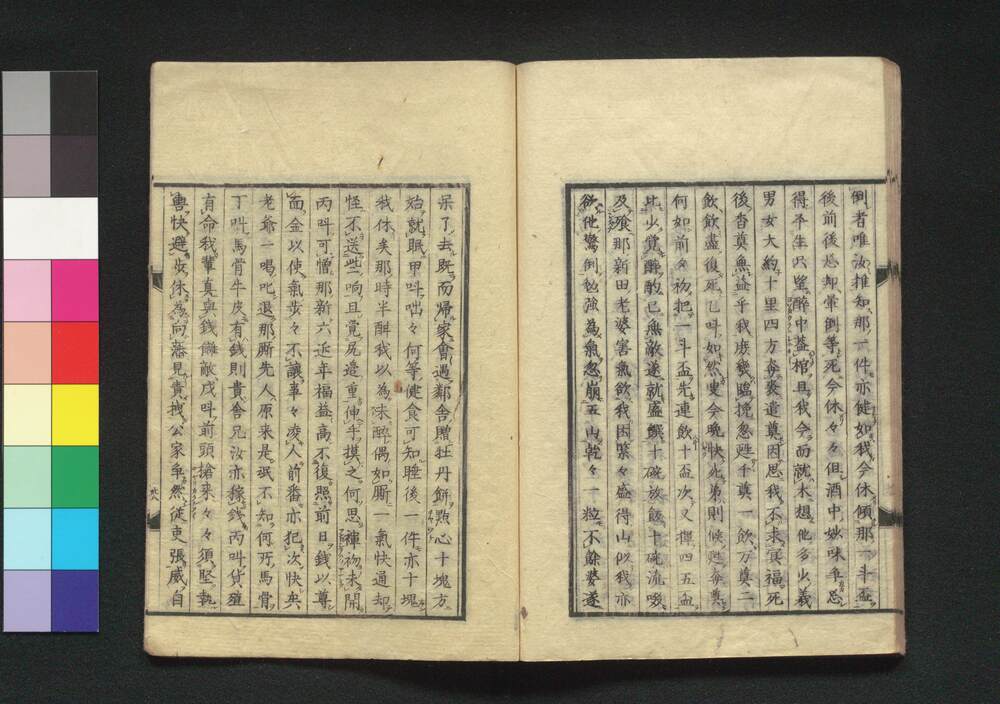 倒者唯汝推知那一件亦健如我今休傾那一斗盃
後前後忘却暈倒等死今休々々但酒中妙味争忘
得平生只望醉中蓋棺且我今而就木想他多少義
男女大約十里四方每喪遣奠因思我不求冥福死
後香奠無益乎我庶幾臨挽忽甦千奠一飲万奠二
飲飲盡復死已呌如然叟今晚快光弟則候甦每奠
何如前々初把一斗盃先連飲十盃次又擇四五盃
此少覺醉的已無敵遂就盛饌十碗汝飯十碗流啜
及飱那新田老婆害氣飲我因緊々盛得山似我亦
欲他驚倒勉強為氣忽崩五山乾々一粒不餘婆遂
呆了去既而歸家會遇鄰舍贈牡丹餅點心十塊方
始就眠甲呌咄々何等健食可知睡後一件亦十塊
我休矣那時半酣我以為味醉偶如厮一氣快通却
怪不送些响且覺尻邊重伸手摸之何思褌初未開
丙呌可憎那新六近年福益高不復照前日錢以尊
面金以使氣步々不讓事々凌人前番亦犯次快央
老爺一喝叱退那厮先人原来是砥不知何丐馬骨
丁呌馬骨牛皮有錢則貴舍兄汝亦稼錢丙呌貨殖
有命我輩真與錢讎敵戊呌前頭搶来々々須堅執
轡快避步休為向藩見責拽公家争然従吏張威自